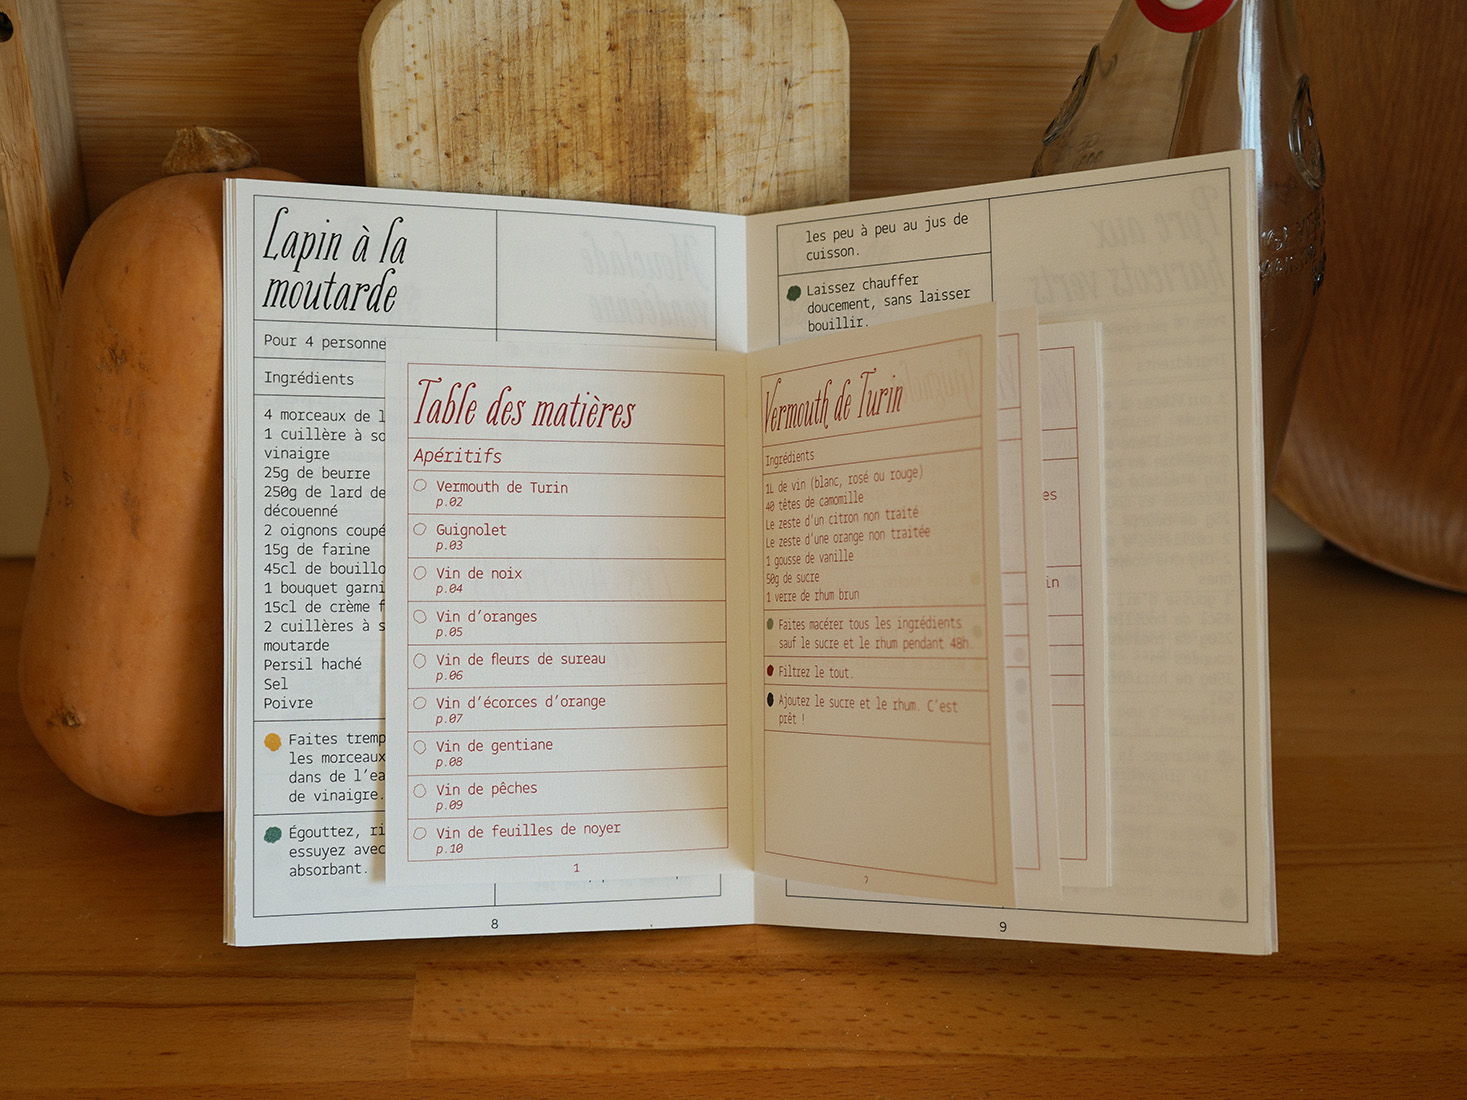 Lapin à la
moutarde
Pour 4 personne
Ingrédients
4 morceaux de l
1 cuillère à so
vinaigre
25g de beurre
250g de lard de
découenné
2 oignons coupé
15g de farine
45cl de bouillo
1 bouquet garni
15cl de crème f
2 cuillères à s
moutarde
Persil haché
Sel
Poivre
Faites tremp
les morceaux
dans de l'ea
de vinaigre.
Égouttez, ri
essuyez avec
absorbant.
8
Table des matières
Apéritifs
Vermouth de Turin
p.02
Guignolet
p.03
Vin de noix
p.04
Vin d'oranges
p.05
Vin de fleurs de sureau
p.06
Vin d'écorces d'orange
p.07
Vin de gentiane
p.08
Vin de pêches
p.09
Vin de feuilles de noyer
p.10
1
Vermouth de Turin
Ingrédients
1L de vin (blanc, rosé ou rouge)
40 têtes de camomille
Le zeste d'un citron non traité
Le zeste d'une orange non traitée
1 gousse de vanille
50g de sucre
1 verre de rhum brun
Faites macérer tous les ingrédients
sauf le sucre et le rhum pendant 48h.
Filtrez le tout.
Ajoutez le sucre et le rhum. C'est
prêt !
les peu à peu au jus de
cuisson.
Laissez chauffer
doucement, sans laisser
bouillir.
es
in
9